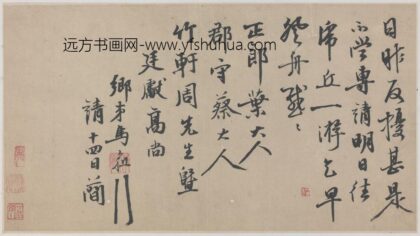 远方书画网--www.yfshuhua.com
日昨反擾甚是
不當專請明日往
虎丘一游乞早
登舟感〻
正郎葉大人
郡守蔡大人
竹軒周先生暨
廷獻高尚
鄉末馬
請十四日簡